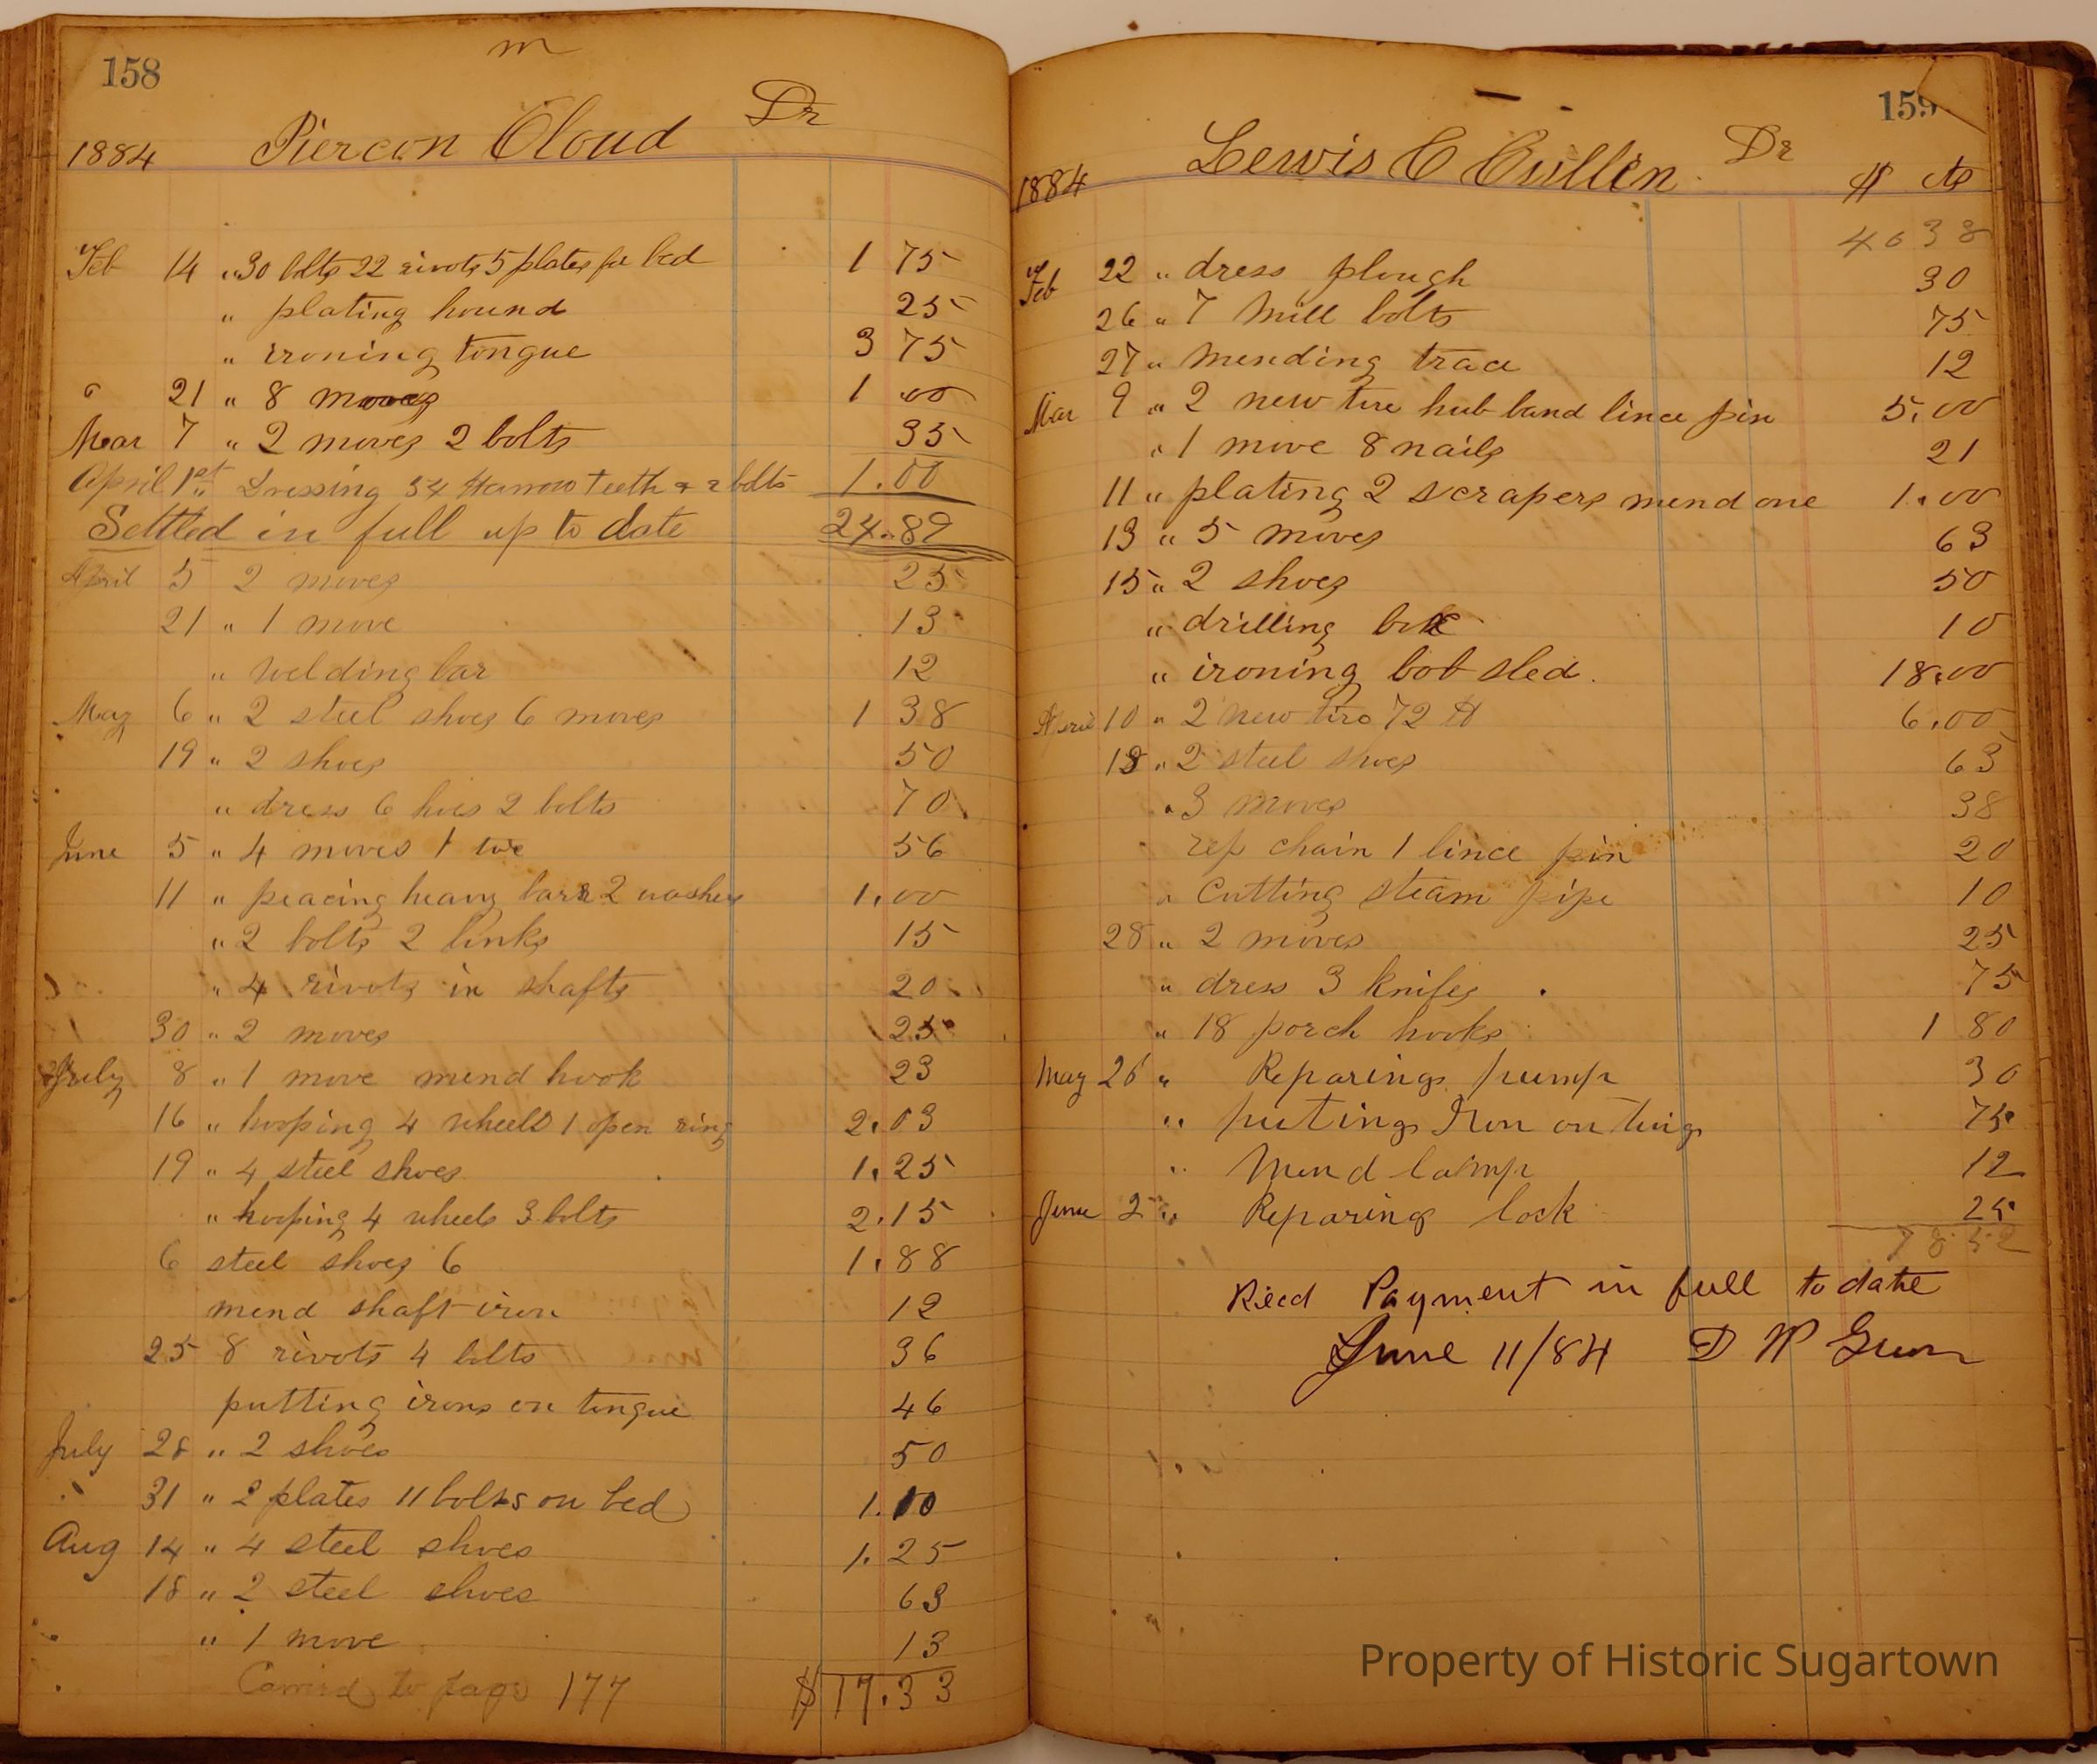 158
m
1884 Piercon Cloud Dr
Feb 14 " 30 bolts 22 rivots 5 plates for bed 1 75
" plating hound 25
" ironing tongue 3 75
" 21 " 8 moves 1 00
Mar 7 " 2 moves 2 bolts 35
April 1st " Dressing 34 Harrow Teeth & 2 bolts 1.00
Settled in full up to date 24.89
April 5 2 moves 25
21 " 1 move 13
" welding bar 12
May 6 " 2 steel shoes 6 moves 1 38
19 " 2 shoes 50
" dress 6 hoes 2 bolts 70
June 5 " 4 moves 1 toe 56
11 " peacing heavy bar & 2 washers 1.00
" 2 bolts 2 links 15
" 4 rivots in shafts 20
30 " 2 moves 25
July 8 " 1 move mend hook 23
16 " hooping 4 wheels 1 open ring 2.03
19 " 4 steel shoes 1.25
" hooping 4 wheels 3 bolts 2.15
6 steel shoes 6 1.88
mend shaft iron 12
25 8 rivots 4 bolts 36
putting irons on tongue 46
July 28 " 2 shoes 50
31 " 2 plates 11 bolts on bed 1.10
Aug 14 " 4 steel shoes 1.25
18 " 2 steel shoes 63
" 1 move 13
Carried to page 177 $17.33
159
1884 Lewis C Cullen Dr $ cts
4638
Feb 22 " dress plough 30
26 " 7 Mill bolts 75
27 " mending trace 12
Mar 9 " 2 new tire hub band lince pin 5.00
" 1 move 8 nails 21
11 " plating 2 scrapers mend one 1.00
13 " 5 moves 63
15 " 2 shoes 50
" drilling 10
" ironing bob sled. 18.00
April 10 " 2 new tire 72 6.00
18 " 2 steel shoes 63
" 3 moves 38
rep chain 1 lince pin 20
" Cutting steam pipe 10
28 " 2 moves 25
" dress 3 knifes 75
" 18 porch hooks 1 80
May 26 " Reparing pump 30
" puting Iron on 75
" Mend lamp 12
June 2 " Reparing lock 25
78.52
Recd Payment in full to date
June 11/84 D P
Property of Historic Sugartown